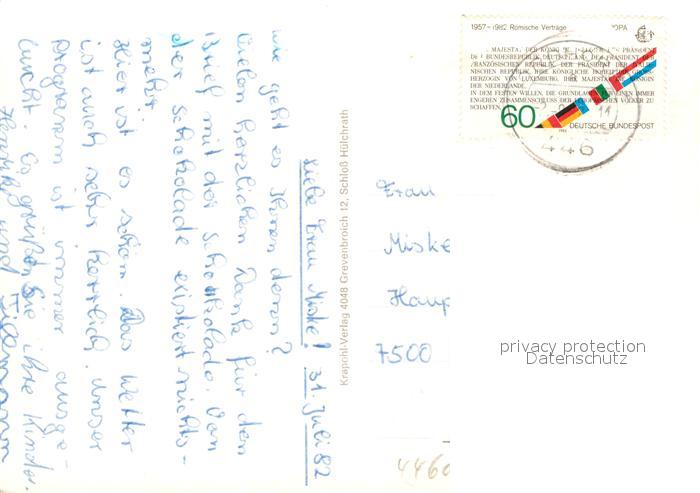 Liebe Frau Miske! 31. Juli 82
wie geht es Ihnen denn?
vielen herzlichen Dank für den
Brief mit der Schokolade. Von
der Schokolade existiert nichts
mehr.
Hier ist es schön. Das Wetter
ist auch sehr herrlich. unser
Programm ist immer ausge-
bucht. Es grüßen Sie ihre Kinder
und Tilemann
Krapohl-Verlag 4048 Grevenbroich 12, Schloß Hülchrath
1957-1982 Römische Verträge
MAJESTÄT DER KÖNIG
BUNDESREPUBLIK DEUTSCHLAND, DER PRÄSIDENT DER
FRANZÖSISCHEN REPUBLIK, DER PRÄSIDENT DER
REPUBLIK, IHRE KÖNIGLICHE HOHEIT DIE
VON LUXEMBURG, IHRE MAJESTÄT DIE KÖNIGIN
DER NIEDERLANDE,
IN DEM FESTEN WILLEN, DIE GRUNDLAGEN EINEN IMMER
ENGEREN ZUSAMMENSCHLUSS DER EUROPÄISCHEN VÖLKER ZU
SCHAFFEN
60
DEUTSCHE BUNDESPOST
446
Frau
Miske
Haup
7500
4460
privacy protection
Datenschutz